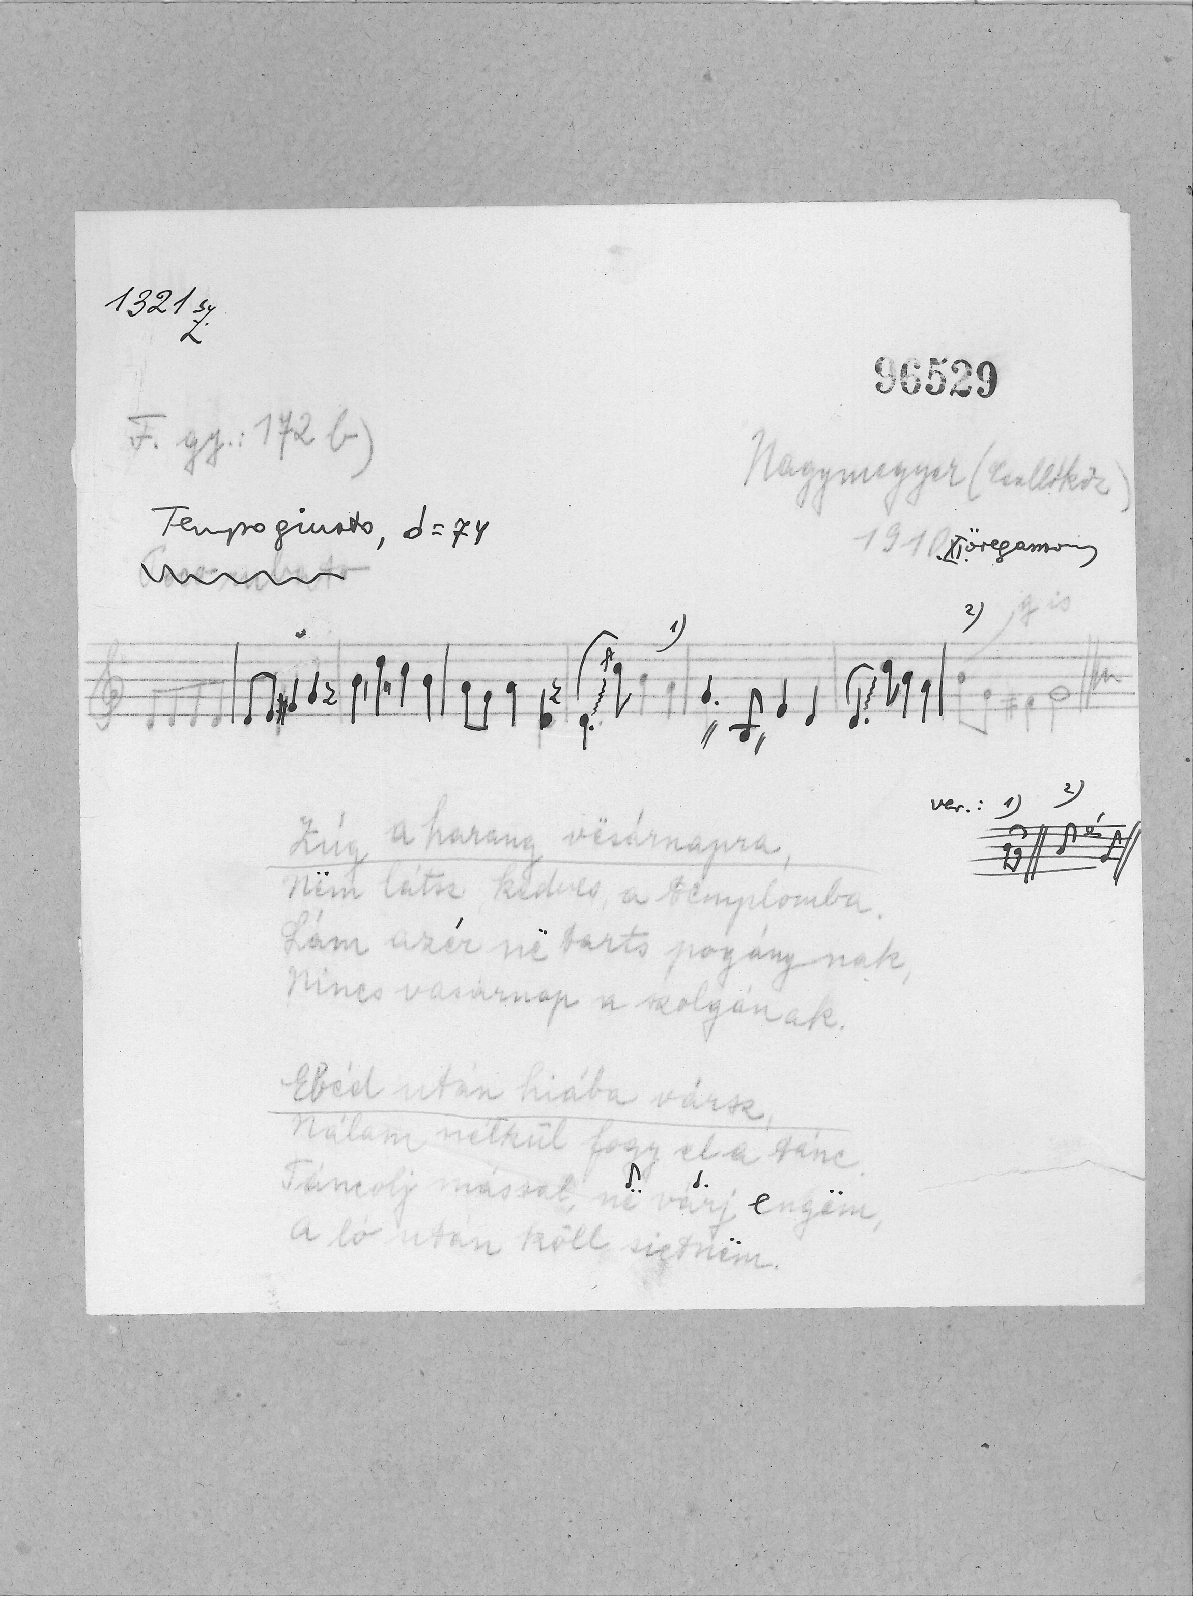 1321 sz.
Z
96529
F. gy.: 172 b)
Nagymegyer (Csallóköz)
1910. XI. öregasszony
Tempo giusto, = 74
1)
2) gis
ver.: 1) 2)
Zúg a harang vësárnapra,
Nëm látsz, kedves, a templomba.
Lám azér në tarts pogánynak,
Nincs vasárnap a szolgának.
Ebéd után hiába vársz,
Nálam nélkül fogy el a tánc.
Táncolj mással, në várj engëm,
A ló után köll sietnëm.